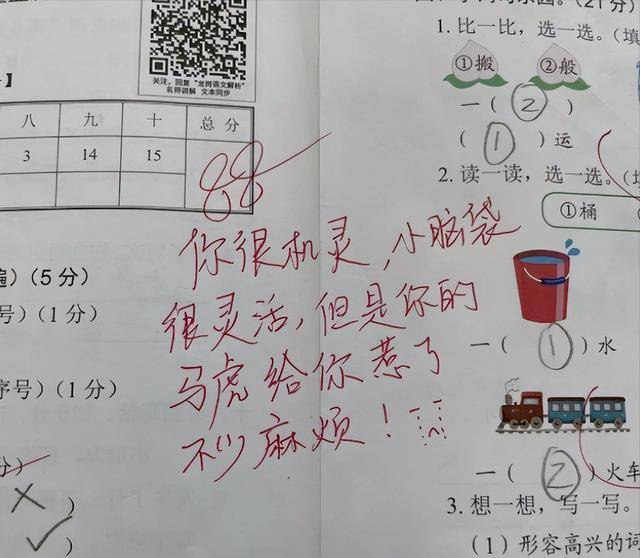 关注，回复"龙岗语文解析"
名师讲解 文本同步
】
八 九 十 总分
3 14 15
88
你很机灵,小脑袋
很灵活,但是你的
马虎给你惹了
不少麻烦!
)(5分)
号)(1分)
序号)(1分)
分)
×)
✓)
(21分)
1.比一比,选一选。(填
①搬 ②般
一(②)
(①)运
2.读一读,选一选。(填
①桶
一(①)水
一(②)火车
3.想一想,写一写。
(1)形容高兴的词